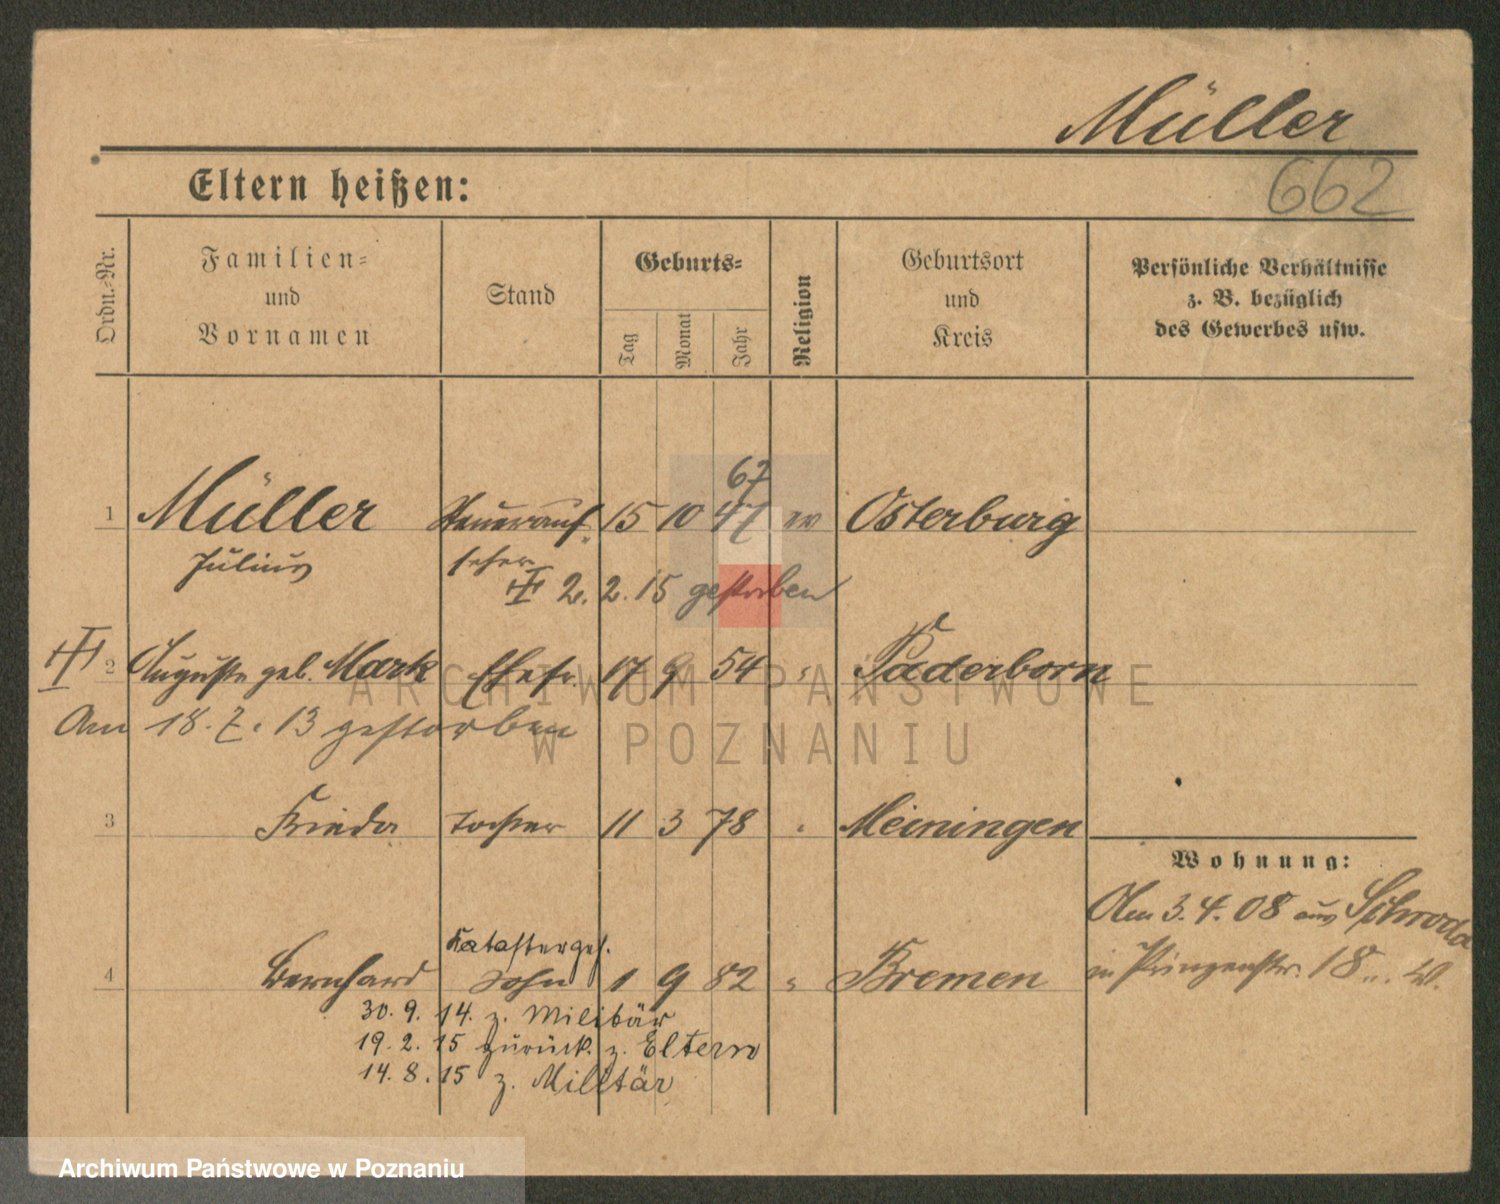 Müller
662
Eltern heißen:
Ordn.-Nr.
Familien-
und
Vornamen
Stand
Geburts-
Tag
Monat
Jahr
Religion
Geburtsort
und
Kreis
Persönliche Verhältnisse
z. B. bezüglich
des Gewerbes usw.
67
1 Müller Steuerauf- 15 10 47 ev Osterburg
Julius seher
2. 2. 15 gestorben
2 Auguste geb. Mark Ehefr. 17 9 54 " Paderborn
Am 18. 7. 13 gestorben
3 Frieda Tochter 11 3 78 " Meiningen
Wohnung:
Am 3. 4. 08 aus Schroda
in Prinzenstr. 18
Katastergeh.
4 Bernhard Sohn 1 9 82 " Bremen
30. 9. 14. z. Militär
19. 2. 15 zurück. z. Eltern
14. 8. 15 z. Militär
ARCHIWUM PAŃSTWOWE
W POZNANIU
Archiwum Państwowe w Poznaniu